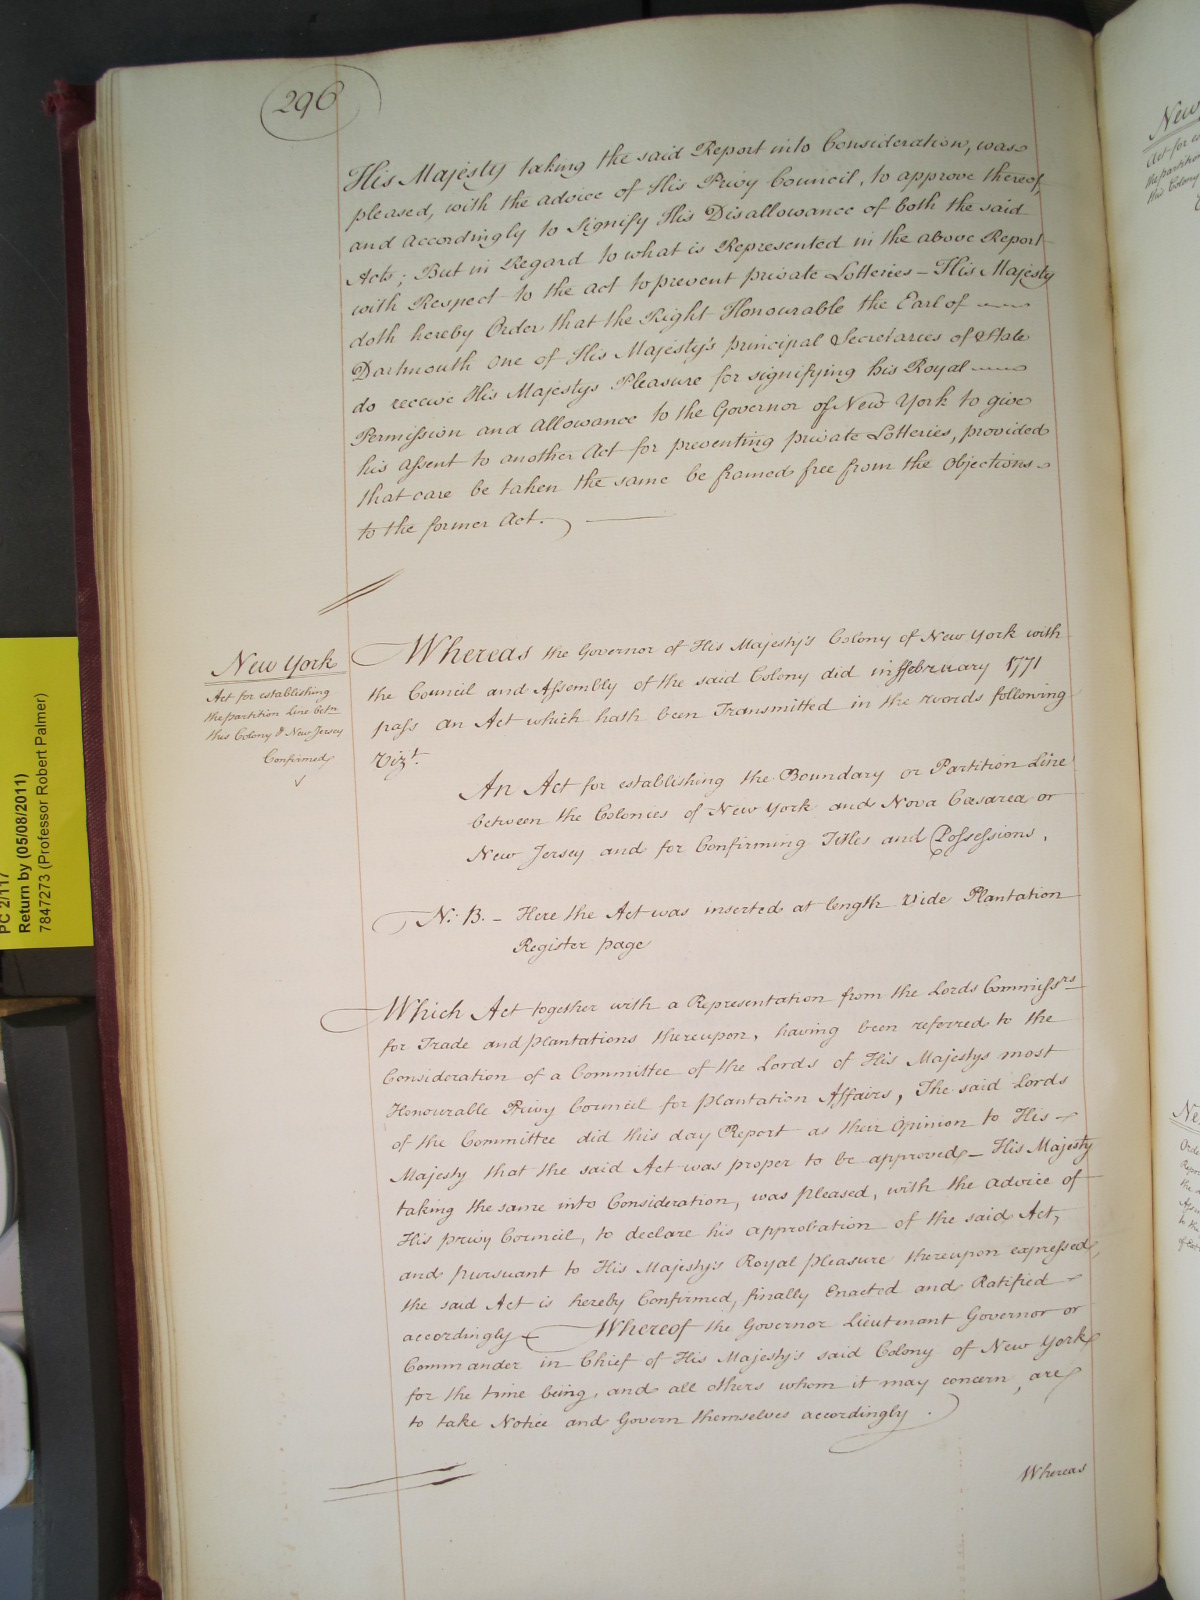 296
His Majesty taking the said Report into Consideration, was
pleased, with the advice of His Privy Council, to approve thereof,
and accordingly to signify His Disallowance of both the said
Acts; But in Regard to what is Represented in the above Report
with Respect to the act to prevent private Lotteries – His Majesty
doth hereby Order that the Right Honourable the Earl of
Dartmouth one of His Majesty's principal Secretaries of State
do receive His Majestys Pleasure for signifying his Royal
Permission and allowance to the Governor of New York to give
his assent to another Act for preventing private Lotteries, provided
that care be taken the same be framed free from the Objections
to the former Act.
New York
Act for establishing
the partition Line betn
this Colony & New Jersey
Confirmed
Whereas the Governor of His Majesty's Colony of New York with
the Council and Assembly of the said Colony did in ffebruary 1771
pass an Act which hath been Transmitted in the words following
Vizt.
An Act for establishing the Boundary or Partition Line
between the Colonies of New York and Nova Cæsarea or
New Jersey and for Confirming Titles and Possessions.
N: B. – Here the Act was inserted at length Vide Plantation
Register page
Which Act together with a Representation from the Lords Commissrs
for Trade and plantations thereupon, having been referred to the
Consideration of a Committee of the Lords of His Majestys most
Honourable Privy Council for plantation Affairs, The said Lords
of the Committee did this day Report as their Opinion to His
Majesty that the said Act was proper to be approved – His Majesty
taking the same into Consideration, was pleased, with the advice of
His privy Council, to declare his approbation of the said Act,
and pursuant to His Majesty's Royal pleasure thereupon expressed,
the said Act is hereby Confirmed, finally Enacted and Ratified
accordingly Whereof the Governor Lieutenant Governor or
Commander in Chief of His Majesty's said Colony of New York
for the time being, and all others whom it may concern, are
to take Notice and Govern themselves accordingly.
Whereas
PC 2/117
Return by (05/08/2011)
7847273 (Professor Robert Palmer)
New